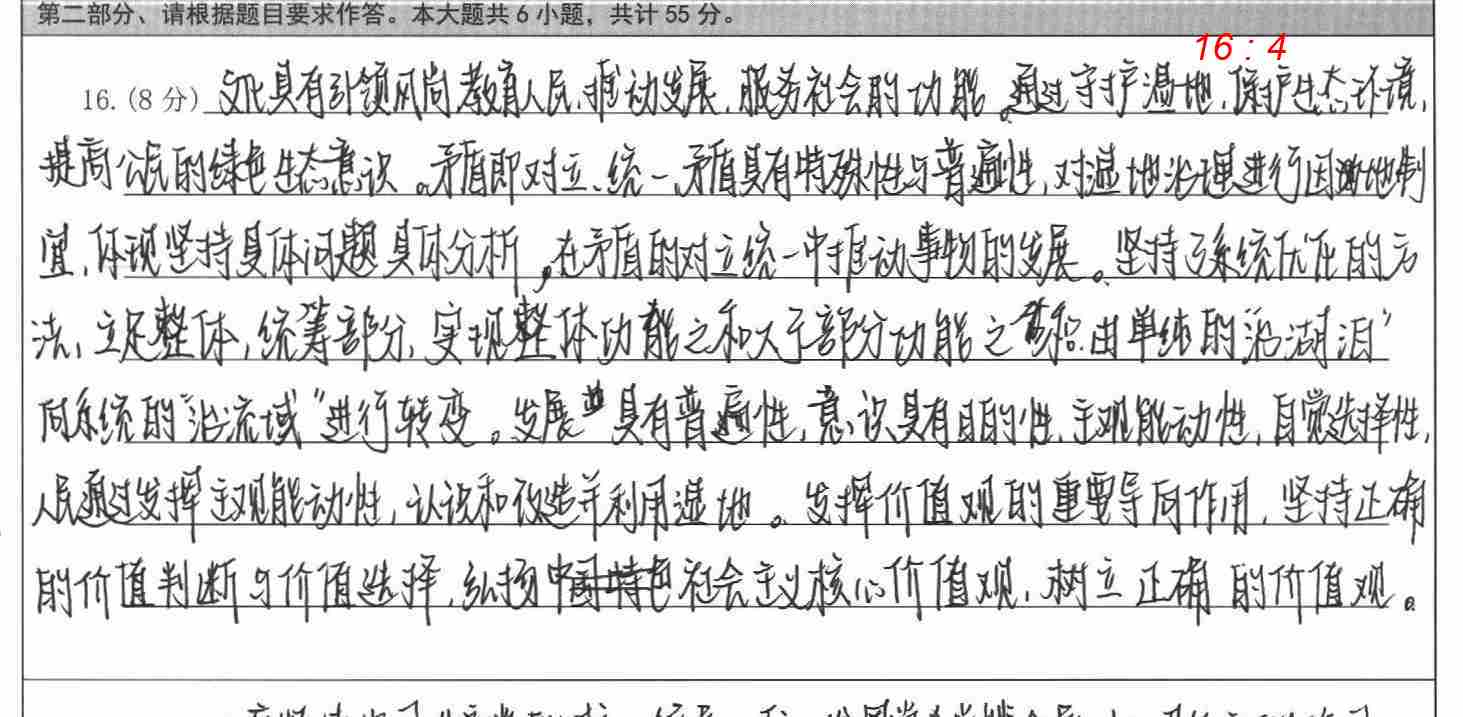 第二部分、请根据题目要求作答。本大题共 6 小题，共计 55 分。
16 : 4
16. (8 分) 文化具有引领风尚、教育人民、推动发展、服务社会的功能。通过守护湿地,保护生态环境,
提高公民的绿色生态意识。矛盾即对立、统一,矛盾具有特殊性与普遍性,对湿地治理进行因地制
宜,体现坚持具体问题具体分析,在矛盾的对立统一中推动事物的发展。坚持了系统优化的方
法,立足整体,统筹部分,实现整体功能之和大于部分功能之和.由单纯的"治湖泊"
向系统的"治流域"进行转变。发展具有普遍性,意识具有目的性,主观能动性,自觉选择性,
人民通过发挥主观能动性,认识和改造并利用湿地。发挥价值观的重要导向作用,坚持正确
的价值判断与价值选择,弘扬中国特色社会主义核心价值观,树立正确的价值观。